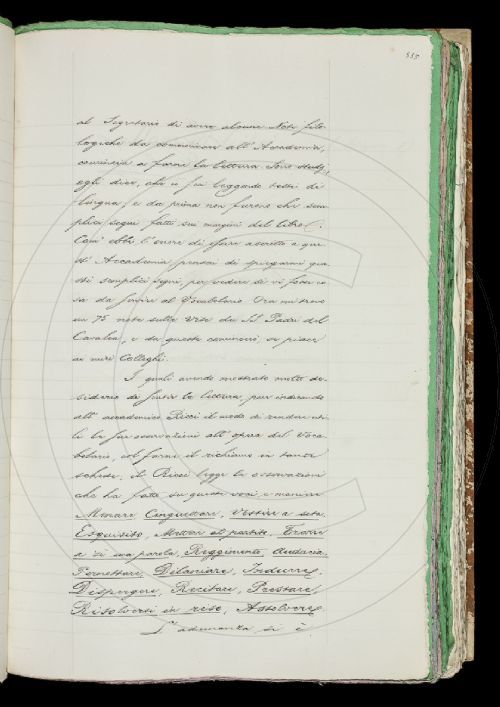 555
al Segretario di avere alcune Note filo-
logiche da comunicare all'Accademia,
comincia a farne la lettura. Sono studj,
egli dice, che io fui leggendo testi di
lingua, e da prima non furono che sem-
plici segni fatti sui margini del libro.
Com' ebbi l'onore di esser ascritto a que-
st' Accademia pensai di spiegarmi que
sti semplici segni, per vedere se vi fosse co
sa da servire al Vocabolario. Ora mi trovo
un 75 note sulle Vite de' SS. Padri del
Cavalca, e da queste comincerò, se piace
ai miei Colleghi.
I quali avendo mostrato molto de-
siderio di sentir la lettura, pur indicando
all' accademico Ricci il modo di rendere uti-
li le sue osservazioni all' opera del Voca-
bolario, col farne il richiamo in tante
schede; il Ricci legge le osservazioni
che ha fatte su questi voci e maniere
Menare, Conguettare, Vestir a seta,
Esquisito, Metter al partito, Trarre
a sè una parola, Reggimento, Audacia,
Pernottare, Dilaniare, Indurre,
Dispergere, Recitare, Prestare,
Risolversi in riso, Assolvere.
L'adunanza si è